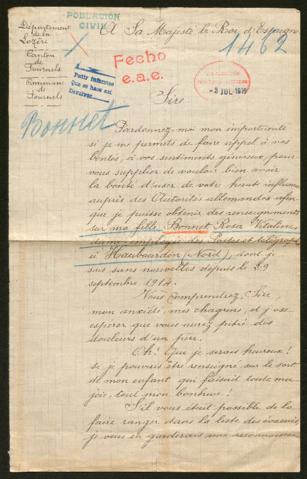 POBLACION
CIVIL
Département
de la
Lozère
Canton
de
Fournels
Commune
de
Fournels
A Sa Majesté le Roi d'Espagne
1462
Fecho
e.a.e.
Pedir informes
que se hace sin
- 3 JUL. 1915
Bonnet
Sire
Pardonnez moi mon importunité
si je me permets de faire appel à vos
bontés, à vos sentiments généreux, pour
vous supplier de vouloir bien avoir
la bonté d'user de votre haute influence
auprès des Autorités allemandes afin
que je puisse obtenir des renseignements
sur ma fille Bonnet Rosa Vitaline
dame employée des Postes et télégraphes
à Haubourdin (Nord), dont je
suis sans nouvelles depuis le 29
septembre 1914.
Vous comprendrez, Sire,
mon anxiété, mes chagrins, et j'ose
espérer que vous aurez pitié des
douleurs d'un père.
Oh! Que je serais heureux!
si je pouvais être renseigné sur le sort
de mon enfant qui faisait toute ma
joie, tout mon bonheur!
S'il vous était possible de la
faire ranger dans la liste des évacués,
je vous en garderais une reconnaissance